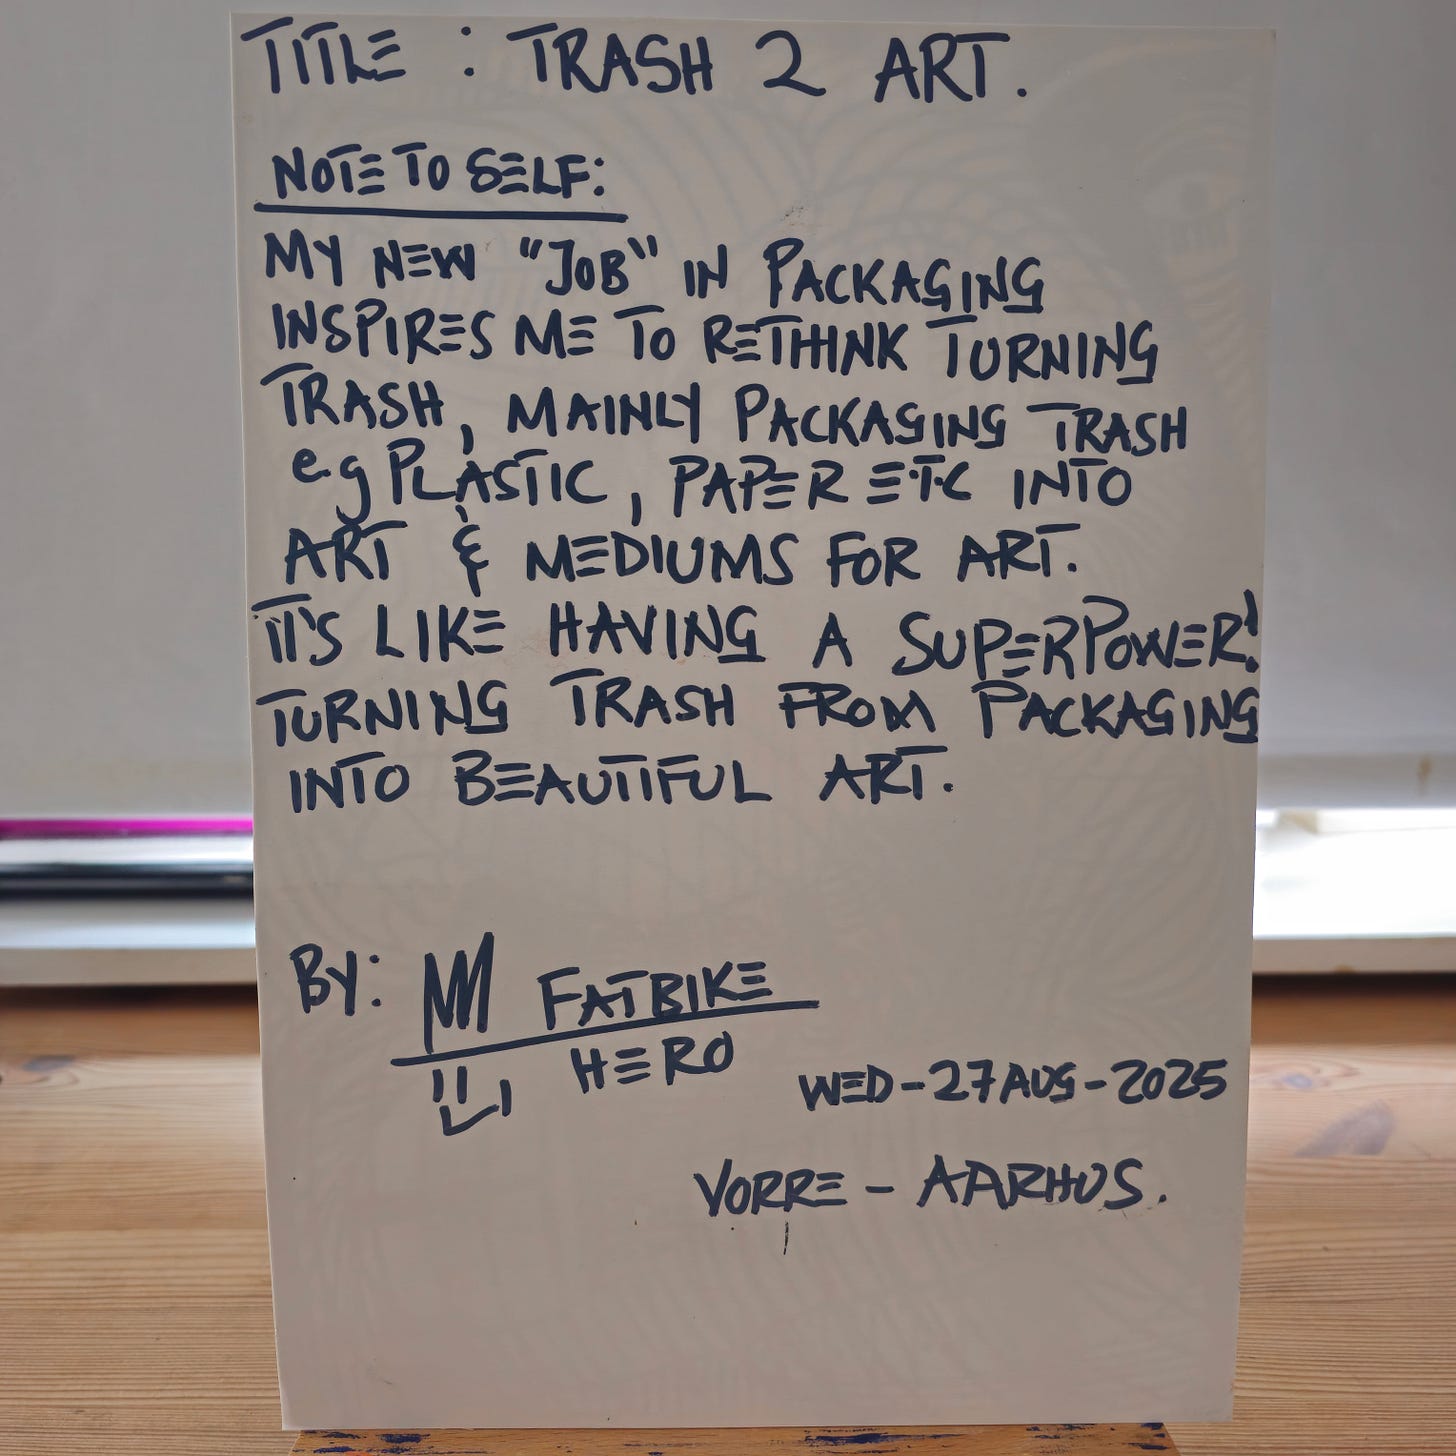 TITLE : TRASH 2 ART.
NOTE TO SELF:
MY NEW "JOB" IN PACKAGING
INSPIRES ME TO RETHINK TURNING
TRASH, MAINLY PACKAGING TRASH
e.g PLASTIC, PAPER ETC INTO
ART & MEDIUMS FOR ART.
IT'S LIKE HAVING A SUPERPOWER!
TURNING TRASH FROM PACKAGING
INTO BEAUTIFUL ART.
BY: FATBIKE
HERO
WED-27AUG-2025
VORRE - AARHUS.